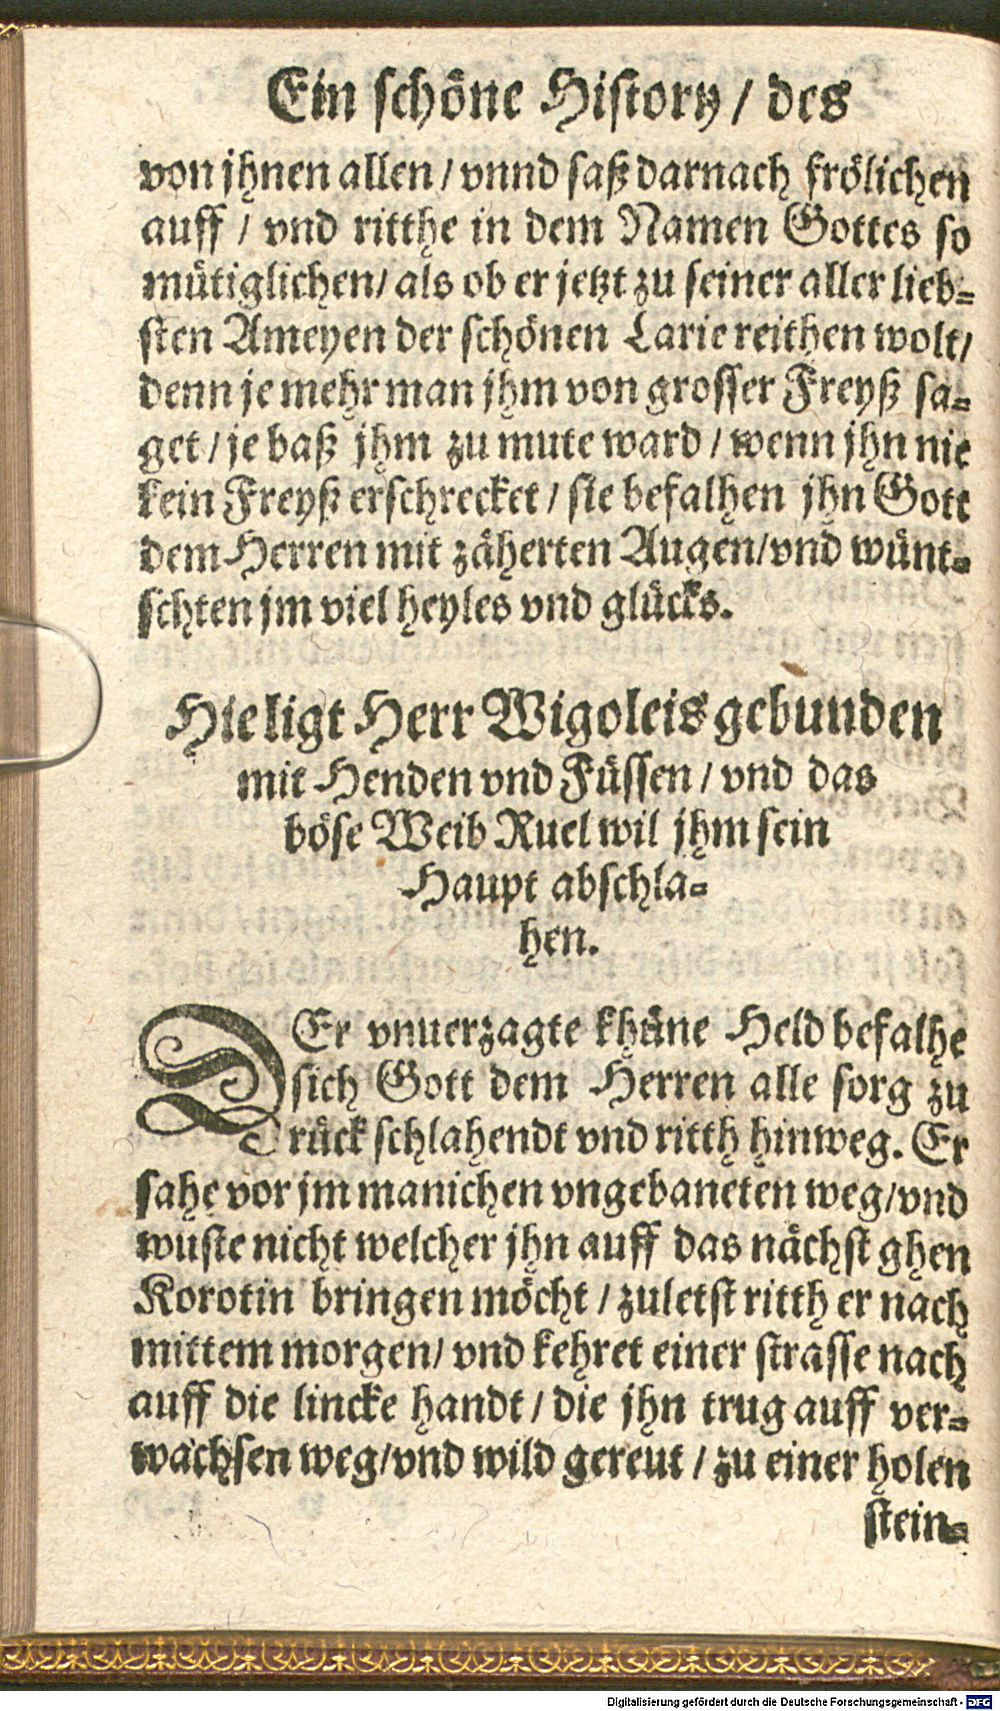 Ein schöne History / des
von jhnen allen / vnnd saß darnach frölichen
auff / vnd ritthe in dem Namen Gottes so
mütiglichen / als ob er jetzt zu seiner aller lieb-
sten Ameyen der schönen Larie reithen wolt /
denn je mehr man jhm von grosser Freyß sa-
get / je baß jhm zu mute ward / wenn jhn nie
kein Freyß erschrecket / sie befalhen jhn Gott
dem Herren mit zäherten Augen / vnd wünt-
schten jm viel heyles vnd glücks.
Hie ligt Herr Wigoleis gebunden
mit Henden vnd Füssen / vnd das
böse Weib Ruel wil jhm sein
Haupt abschla-
hen.
DEr vnuerzagte khüne Held befalhe
sich Gott dem Herren alle sorg zu
rück schlahendt vnd ritth hinweg. Er
sahe vor jm manichen vngebaneten weg / vnd
wuste nicht welcher jhn auff das nächst ghen
Korotin bringen möcht / zuletst ritth er nach
mittem morgen / vnd kehret einer strasse nach
auff die lincke handt / die jhn trug auff ver-
wachsen weg / vnd wild gereut / zu einer holen
stein-
Digitalisierung gefördert durch die Deutsche Forschungsgemeinschaft - DFG